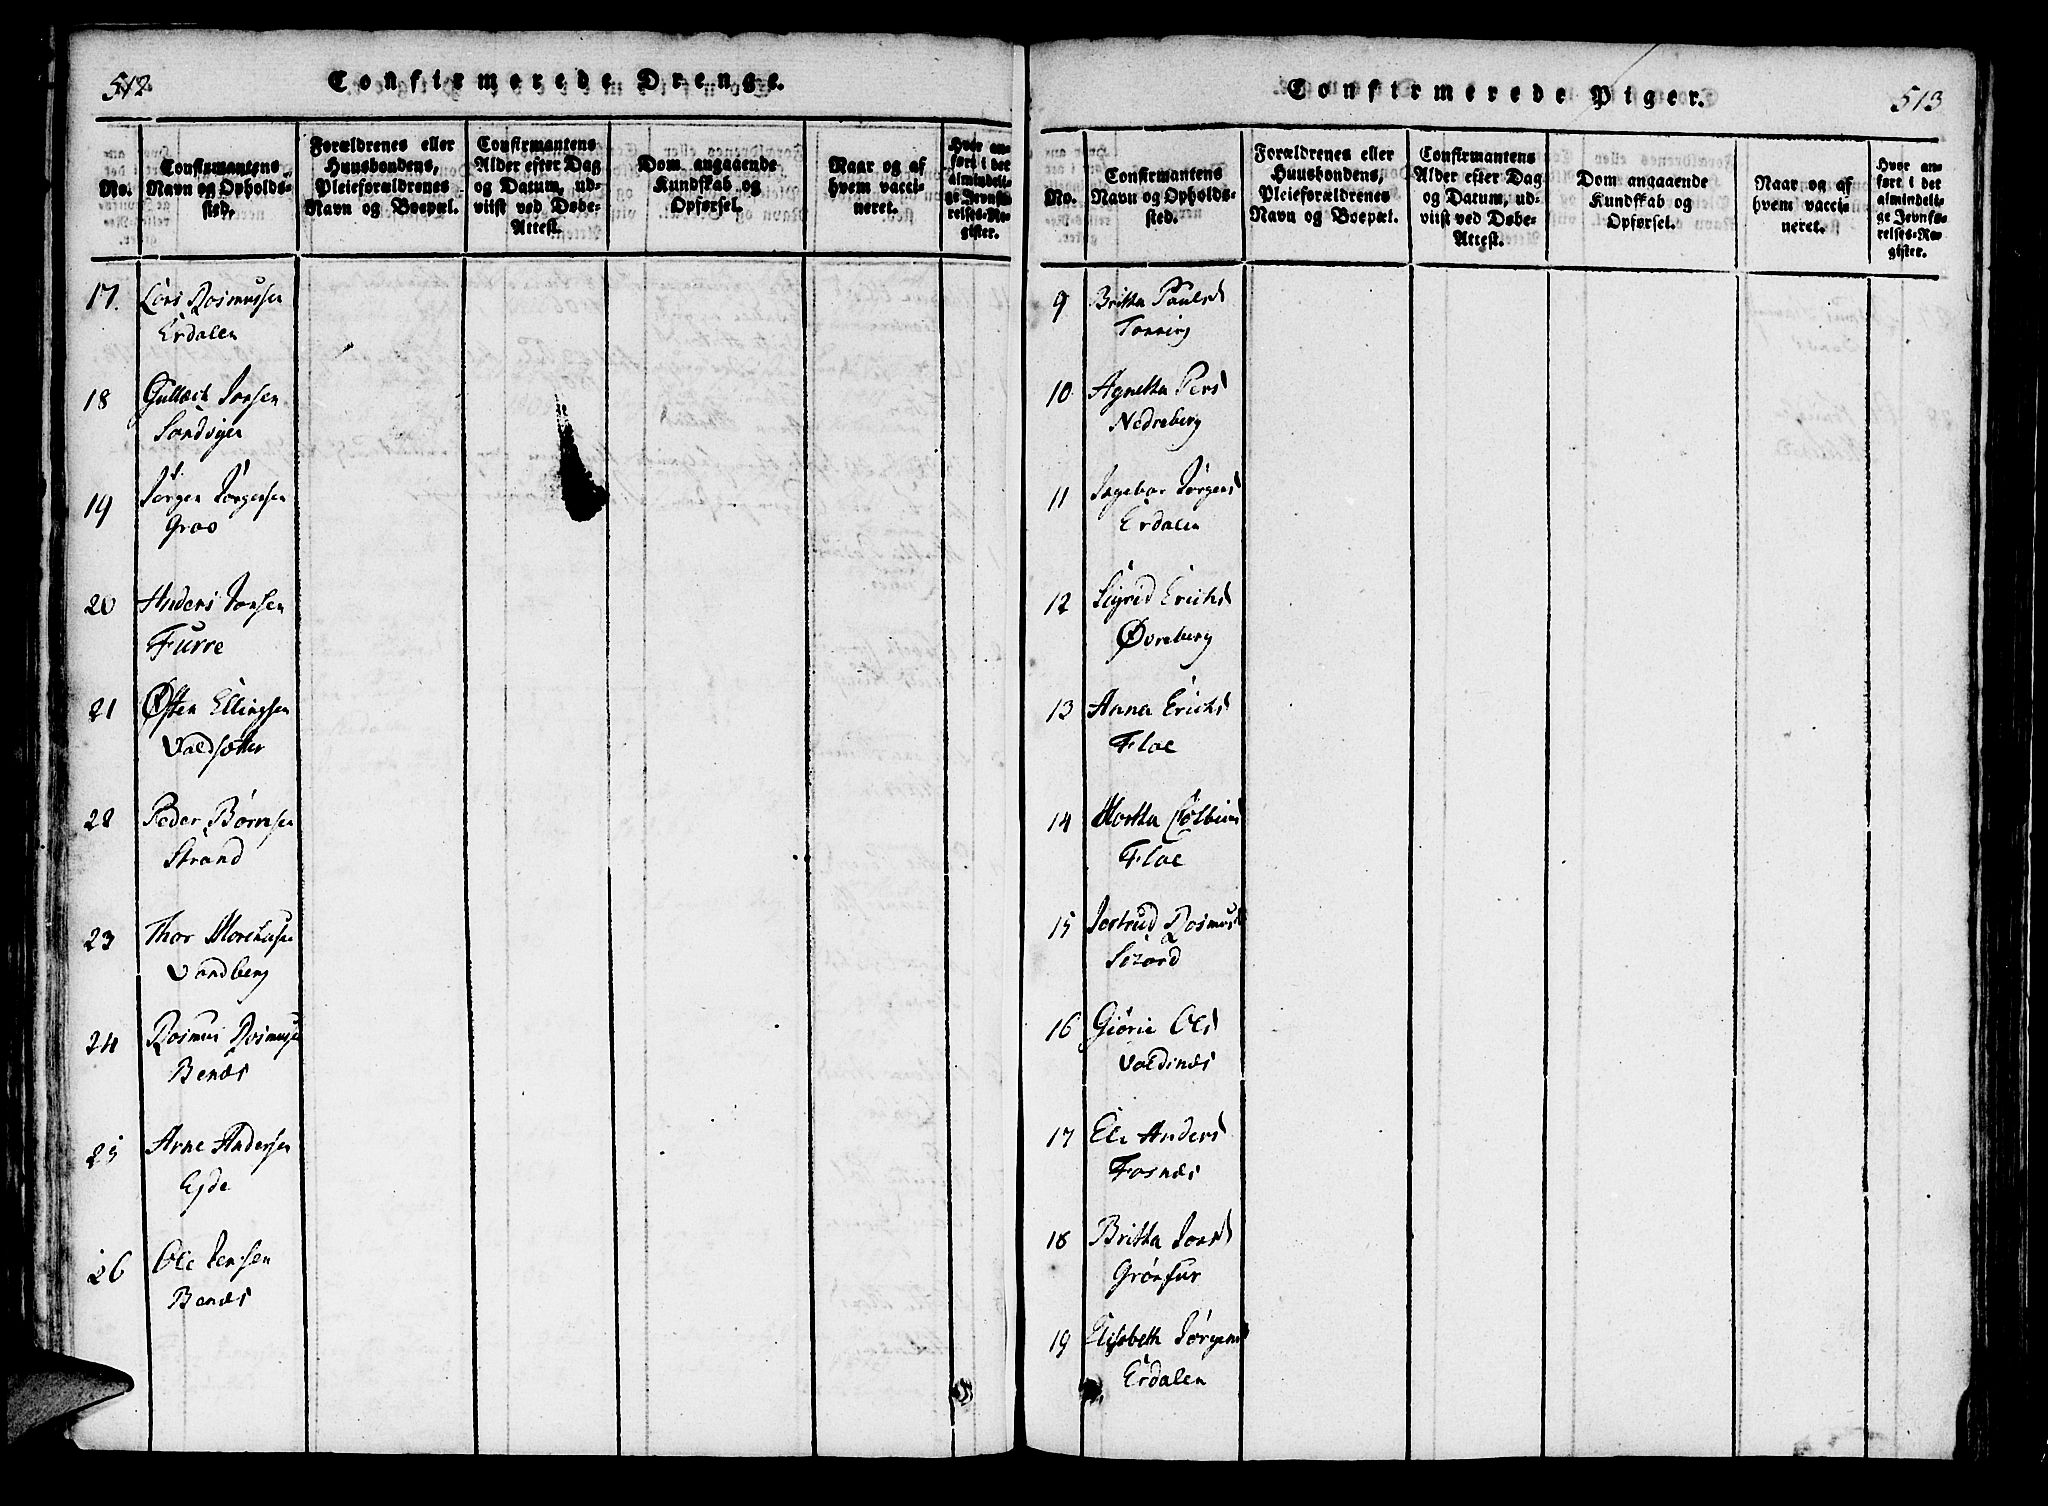 512
Confirmerede Drenge.
No.
Confirmantens
Navn og Opholds-
sted.
Forældrenes eller
Huusbondens,
Pleieforældrenes
Navn og Boepæl.
Confirmantens
Alder efter Dag
og Datum, ud-
viist ved Døbe-
Attest.
Dom angaaende
Kundskab og
Opførsel.
Naar og af
hvem vacci-
neret.
Hvor an-
ført i det
almindeli-
ge Jevnfø-
relses-Re-
gister.
17. Lars Rasmussen
Erdalen
18 Gullach Jonsen
Sandvigen
19 Jørgen Jørgensen
Grov
20 Anders Jonsen
Furre
21 Østen Ellingsen
Valdsætter
22 Peder Børresen
Strand
23 Thor
Vandberg
24 Rasmus Rasmusse
Benæs
25 Arne Andersen
Egde
26 Ole Jensen
Benæs
Confirmerede Piger.
513
No.
Confirmantens
Navn og Opholds-
sted.
Forældrenes eller
Huusbondens,
Pleieforældrenes
Navn og Boepæl.
Confirmantens
Alder efter Dag
og Datum, ud-
viist ved Døbe-
Attest.
Dom angaaende
Kundskab og
Opførsel.
Naar og af
hvem vacci-
neret.
Hvor an-
ført i det
almindeli-
ge Jevnfø-
relses-Re-
gister.
9 Britha Paulsd
Tonning
10 Agnetha Persd
Nedreberg
11 Ingebor Jørgensd
Erdalen
12 Sigrid Erichsd
Øvreberg
13 Anna Erichsd
Floe
14 Martha Colbeinsd
Floe
15 Jertrud Rasmusd
16 Giørie Olsd
Valdinæs
17 Eli Andersd
Fosnæs
18 Britha Jonsd
Grønfur
19 Elisabeth Jørgensd
Erdalen